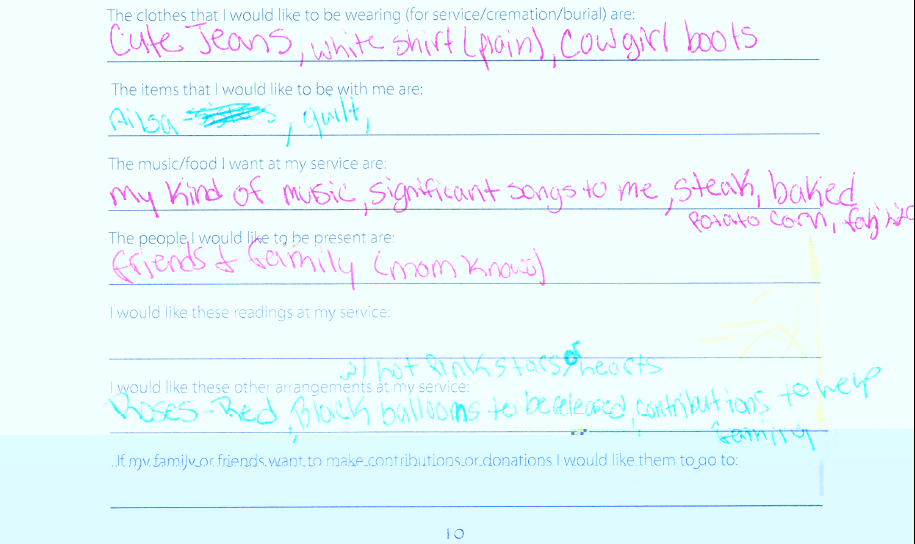 The clothes that I would like to be wearing (for service/cremation/burial) are:
Cute Jeans, white shirt (plain), Cowgirl boots
The items that I would like to be with me are:
Ailsa , quilt,
The music/food I want at my service are:
my kind of music, significant songs to me, steak, baked
potato corn, fajitas
The people I would like to be present are:
friends & family (mom knows)
I would like these readings at my service:
w/ hot pink stars or hearts
I would like these other arrangements at my service:
Roses - Red, Black balloons to be released, contributions to help
family
If my family or friends want to make contributions or donations I would like them to go to:
10